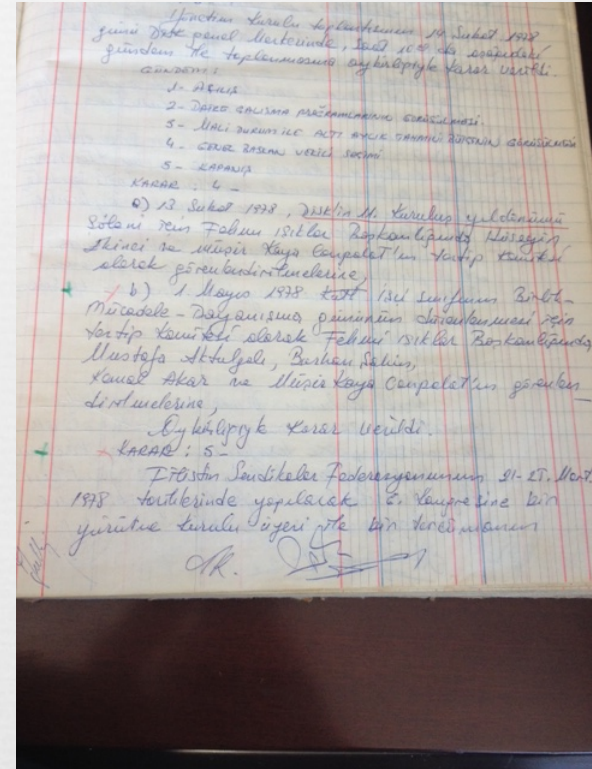 Yönetim Kurulu toplantısının 14 Şubat 1978
günü Disk genel Merkezinde, Saat 10 da aşağıdaki
gündem ile toplanmasına oybirliğiyle karar verildi.
GÜNDEM:
1- AÇILIŞ
2- DAİRE ÇALIŞMA PROGRAMLARININ GÖRÜŞÜLMESİ.
3- MALİ DURUM İLE ALTI AYLIK TAHMİNİ BÜTÇENİN GÖRÜŞÜLMESİ
4- GENEL BAŞKAN VEKİLİ SEÇİMİ
5- KAPANIŞ
KARAR : 4 -
a) 13 Şubat 1978, DİSK'in 11. Kuruluş yıldönümü
Şöleni için Fehmi Işıklar Başkanlığında Hüseyin
Ekinci ve Müşir Kaya Canpolat'ın tertip komitesi
olarak görevlendirilmelerine,
b) 1. Mayıs 1978 işçi sınıfının Birlik-
Mücadele-Dayanışma gününün düzenlenmesi için
tertip komitesi olarak Fehmi Işıklar Başkanlığında,
Mustafa Aktulgalı, Burhan Şahin,
Kemal Akar ve Müşir Kaya Canpolat'ın görevlen
dirilmelerine,
Oybirliğiyle karar verildi.
KARAR : 5-
Filistin Sendikalar Federasyonunun 21-25. Mart.
1978 tarihlerinde yapılacak kongresine bir
yürütme kurulu üyesi ile bir tercümanın